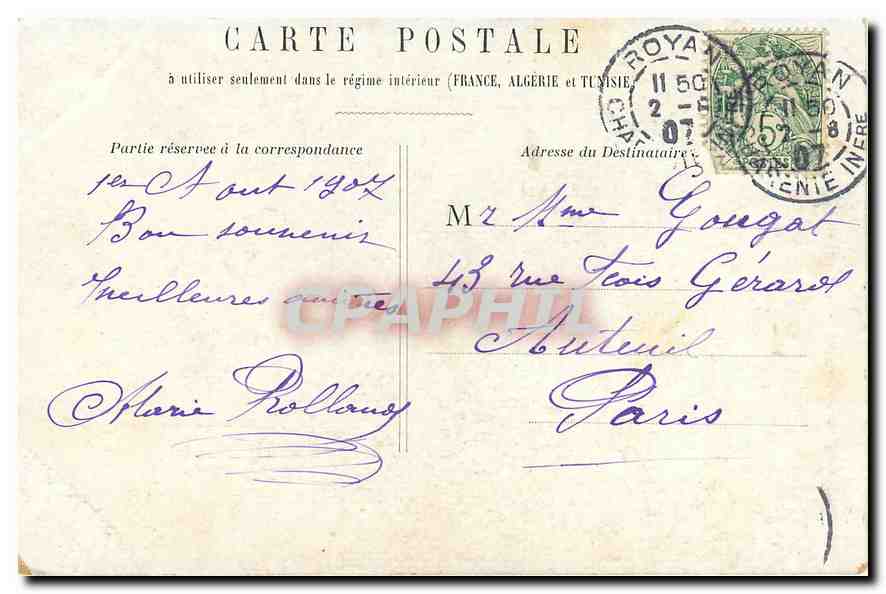 CARTE POSTALE
à utiliser seulement dans le régime intérieur (FRANCE, ALGÉRIE et TUNISIE)
ROYAN
11 50
2 -8
07
ROYAN
11 50
2 -8
07
CHARENTE INFRE
5
Partie réservée à la correspondance
1er Aout 1907
Bon souvenir
Meilleures amitiés
Marie Rolland
Adresse du Destinataire
Mr Mme Gougat
43 rue Fcois Gérard
Auteuil
Paris
CPAPHIL